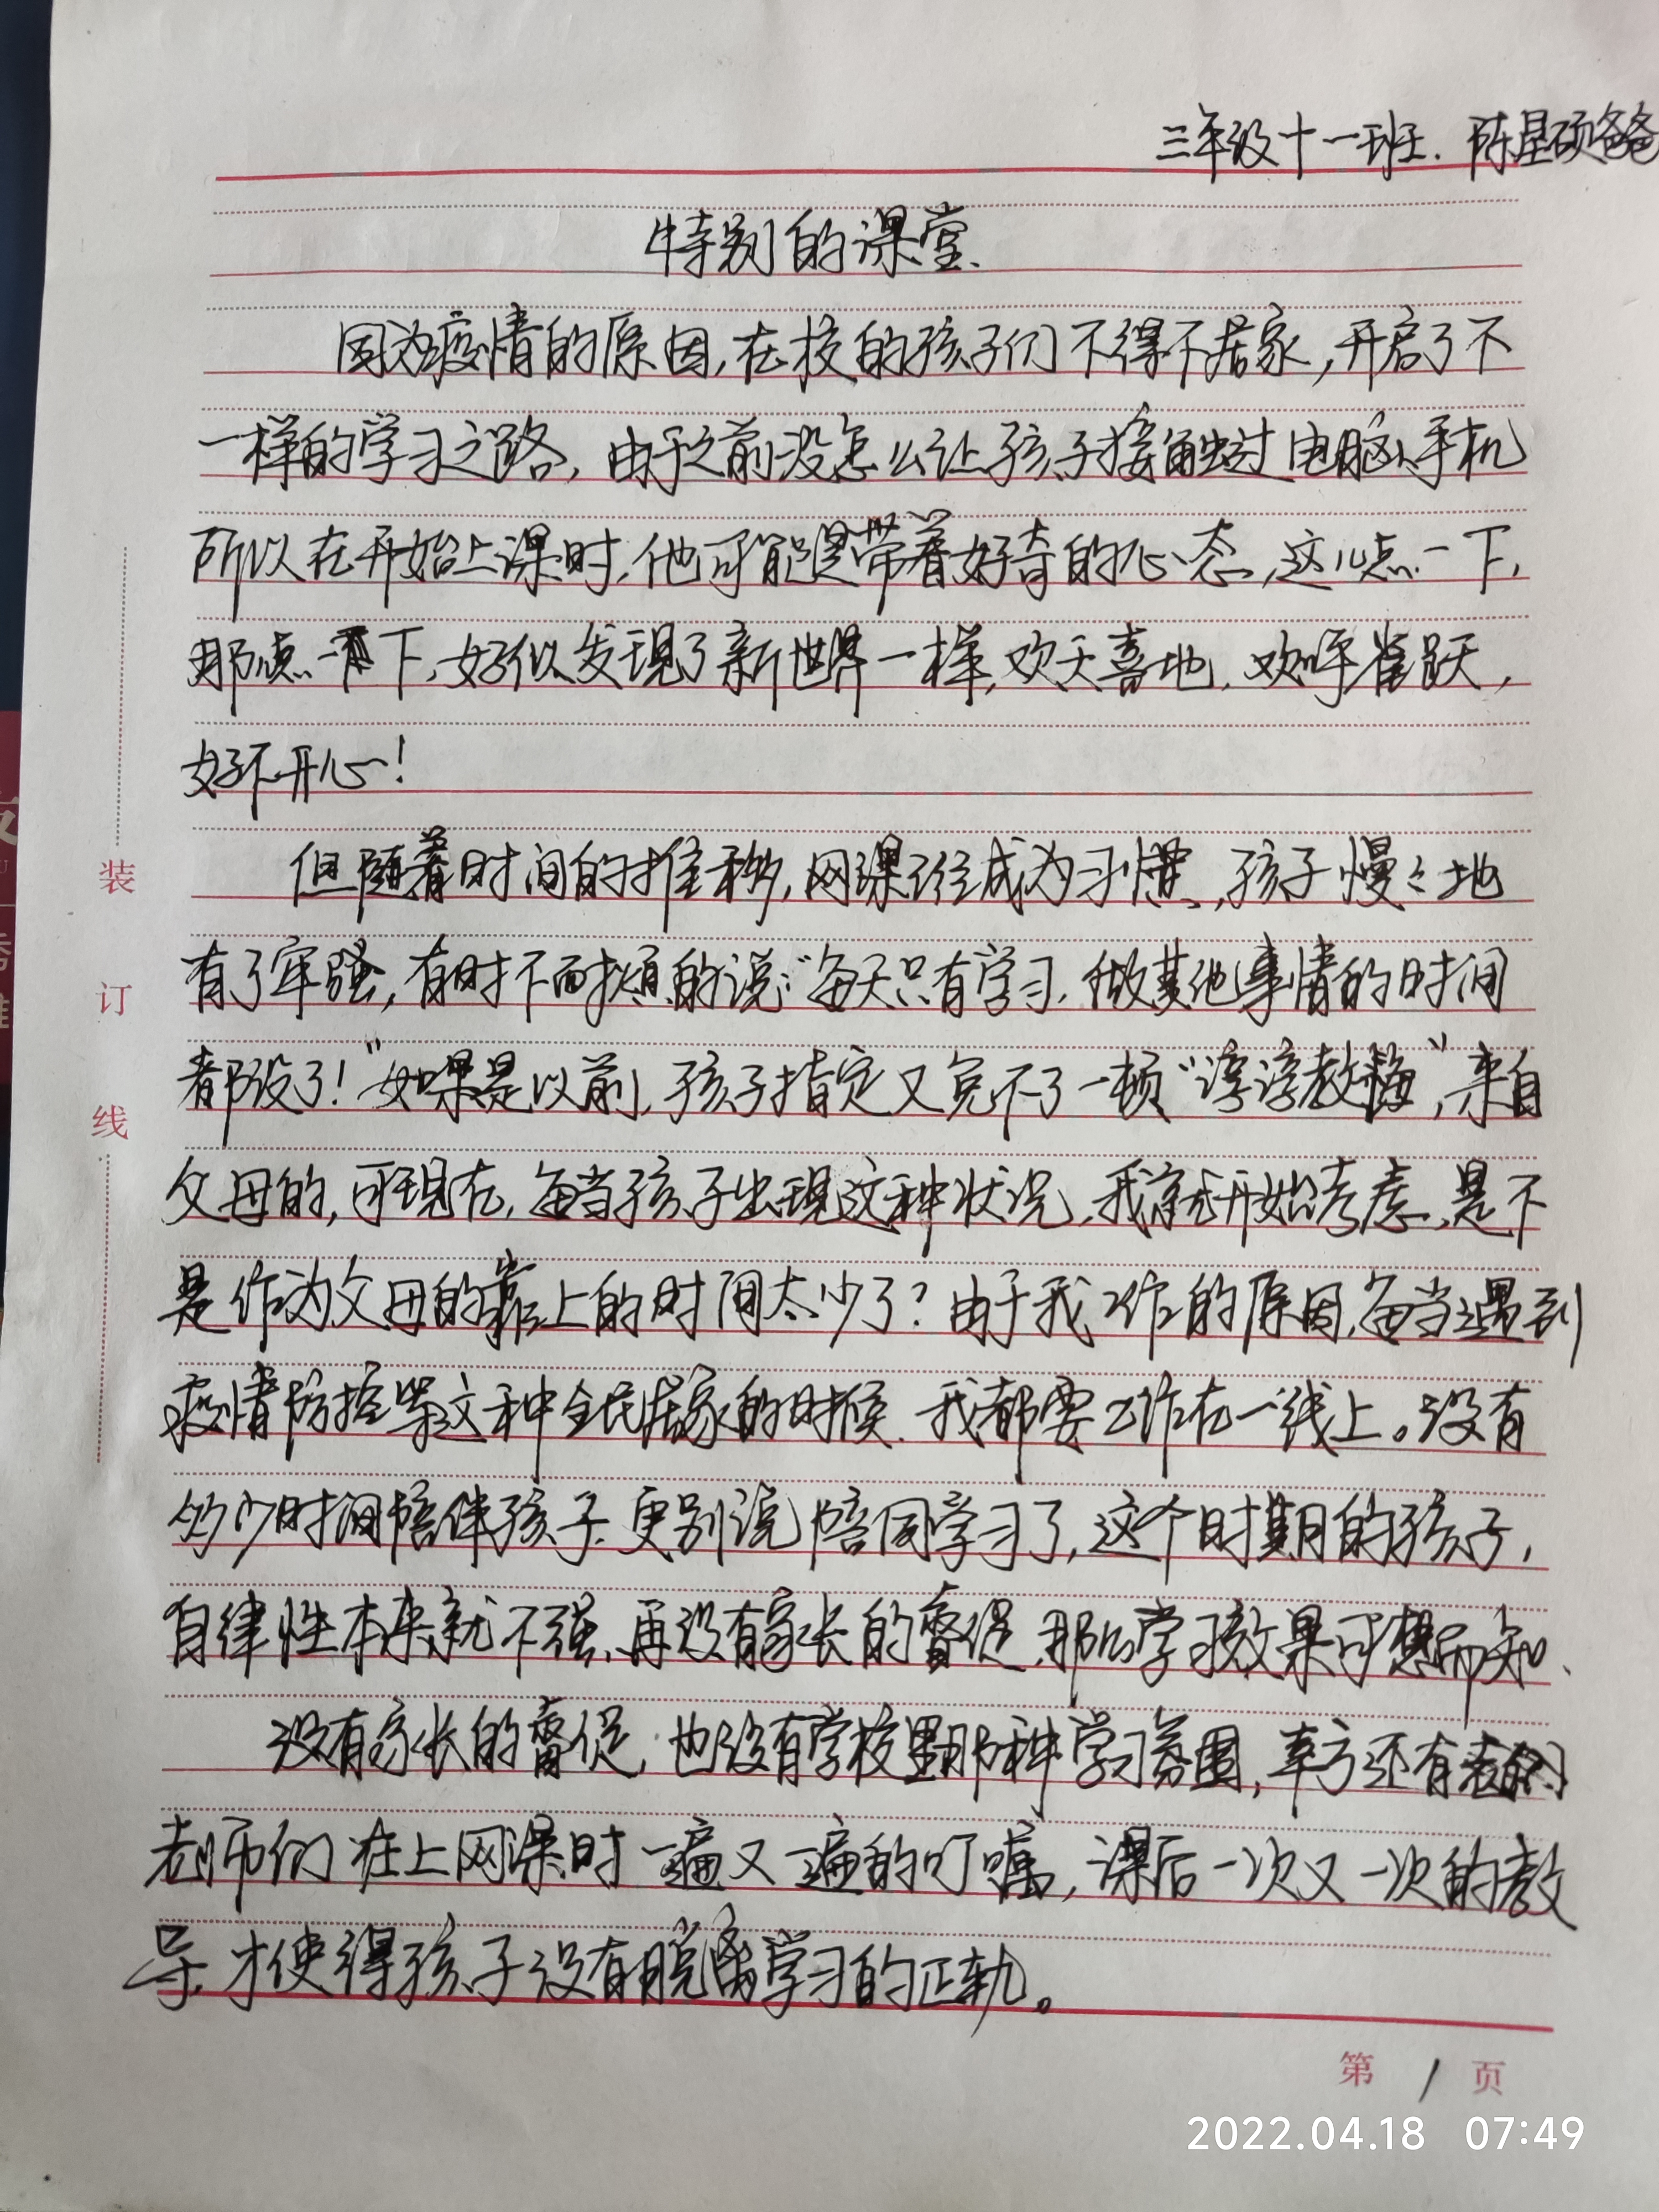 三年级十一班. 陈星硕爸爸
特别的课堂.
因为疫情的原因,在校的孩子们不得不居家,开启了不
一样的学习之路,由于之前没怎么让孩子接触过电脑、手机
所以在开始上课时,他可能是带着好奇的心态,这儿点一下,
那点一下,好似发现了新世界一样,欢天喜地,欢呼雀跃,
好不开心!
但随着时间的推移,网课已经成为习惯,孩子慢慢地
有了牢骚,有时不耐烦的说:“每天只有学习,做其他事情的时间
都没了!”如果是以前,孩子指定又免不了一顿“谆谆教诲”,来自
父母的,可现在,每当孩子出现这种状况,我就开始考虑,是不
是作为父母的靠上的时间太少了?由于我工作的原因,每当遇到
疫情防控等这种全民居家的时候,我都要工作在一线上。没有
多少时间陪伴孩子.更别说陪同学习了,这个时期的孩子,
自律性本来就不强,再没有家长的督促,那么学习效果可想而知、
没有家长的督促,也没有学校里那种学习氛围,幸亏还有
老师们在上网课时一遍又一遍的叮嘱,课后一次又一次的教
导,才使得孩子没有脱离学习的正轨。
装
订
线
第 1 页
2022.04.18 07:49